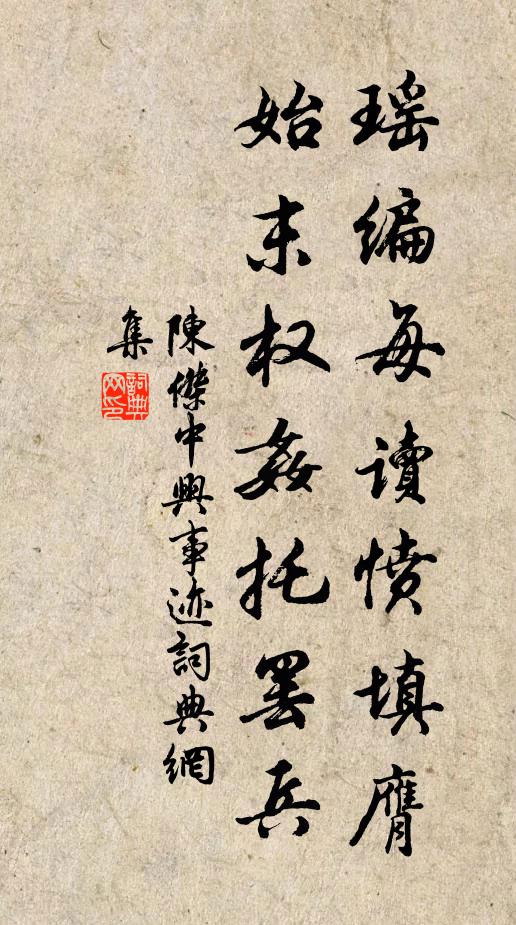 瑶编每读愤填膺
始末权姦托罢兵
陳傑中興事迹詞典網
集
詞典网印